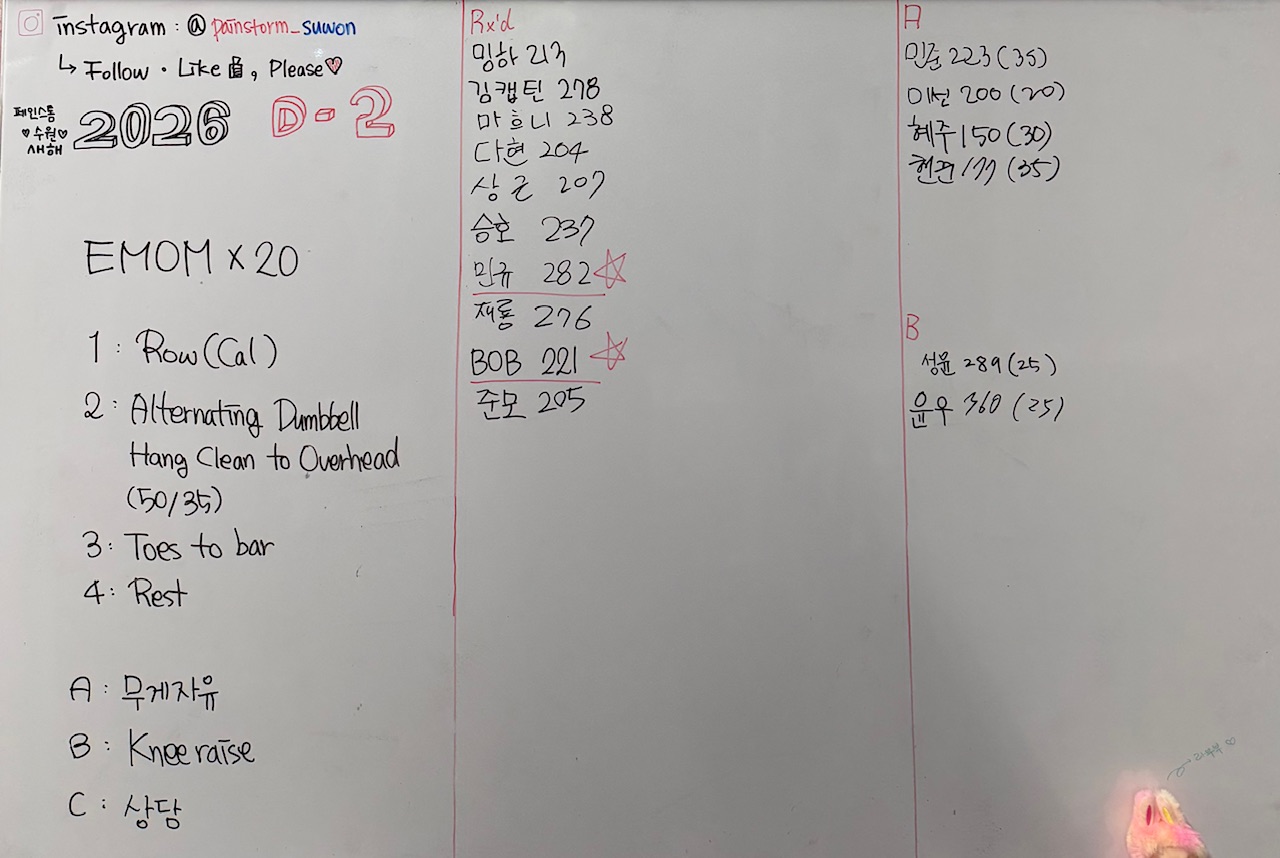 instagram : @ painstorm_suwon
↳ Follow · Like, Please♡
페인스톰
♡수원♡
새해
2026 D-2
EMOM x 20
1 : Row (Cal)
2 : Alternating Dumbbell
Hang Clean to Overhead
(50/35)
3 : Toes to bar
4 : Rest
A : 무게자유
B : Knee raise
C : 상담
Rx'd
밍하 213
김캡틴 278
마흐니 238
다현 204
상근 207
승호 237
민규 282
재룡 276
BOB 221
준모 205
A
민준 223 (35)
미선 200 (20)
혜주 150 (30)
177 (35)
B
성윤 289 (25)
윤우 360 (25)